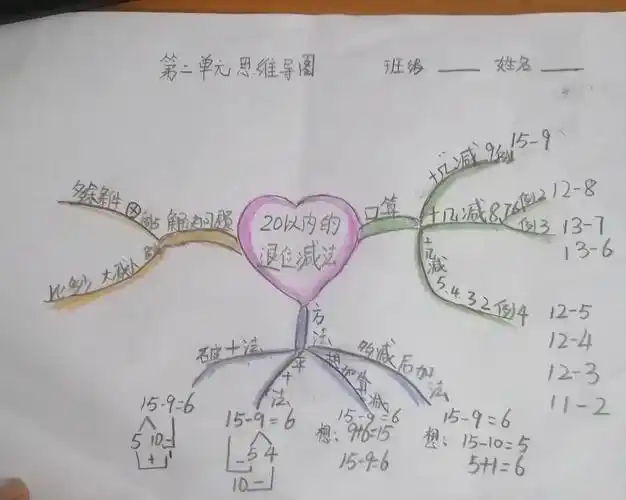 第二单元思维导图 班级 姓名
20以内的
退位减法
口算
十几减9 例1 15-9
十几减8,7,6 例2 12-8
例3 13-7
13-6
十几减
5.4.3.2 例4 12-5
12-4
12-3
11-2
解决问题
多余条件
大减小
方法
破十法
15-9=6
5 10
+
平十法
15-9=6
5 4
10
想加算减
15-9=6
想:9+6=15
15-9=6
多减后加法
15-9=6
想:15-10=5
5+1=6